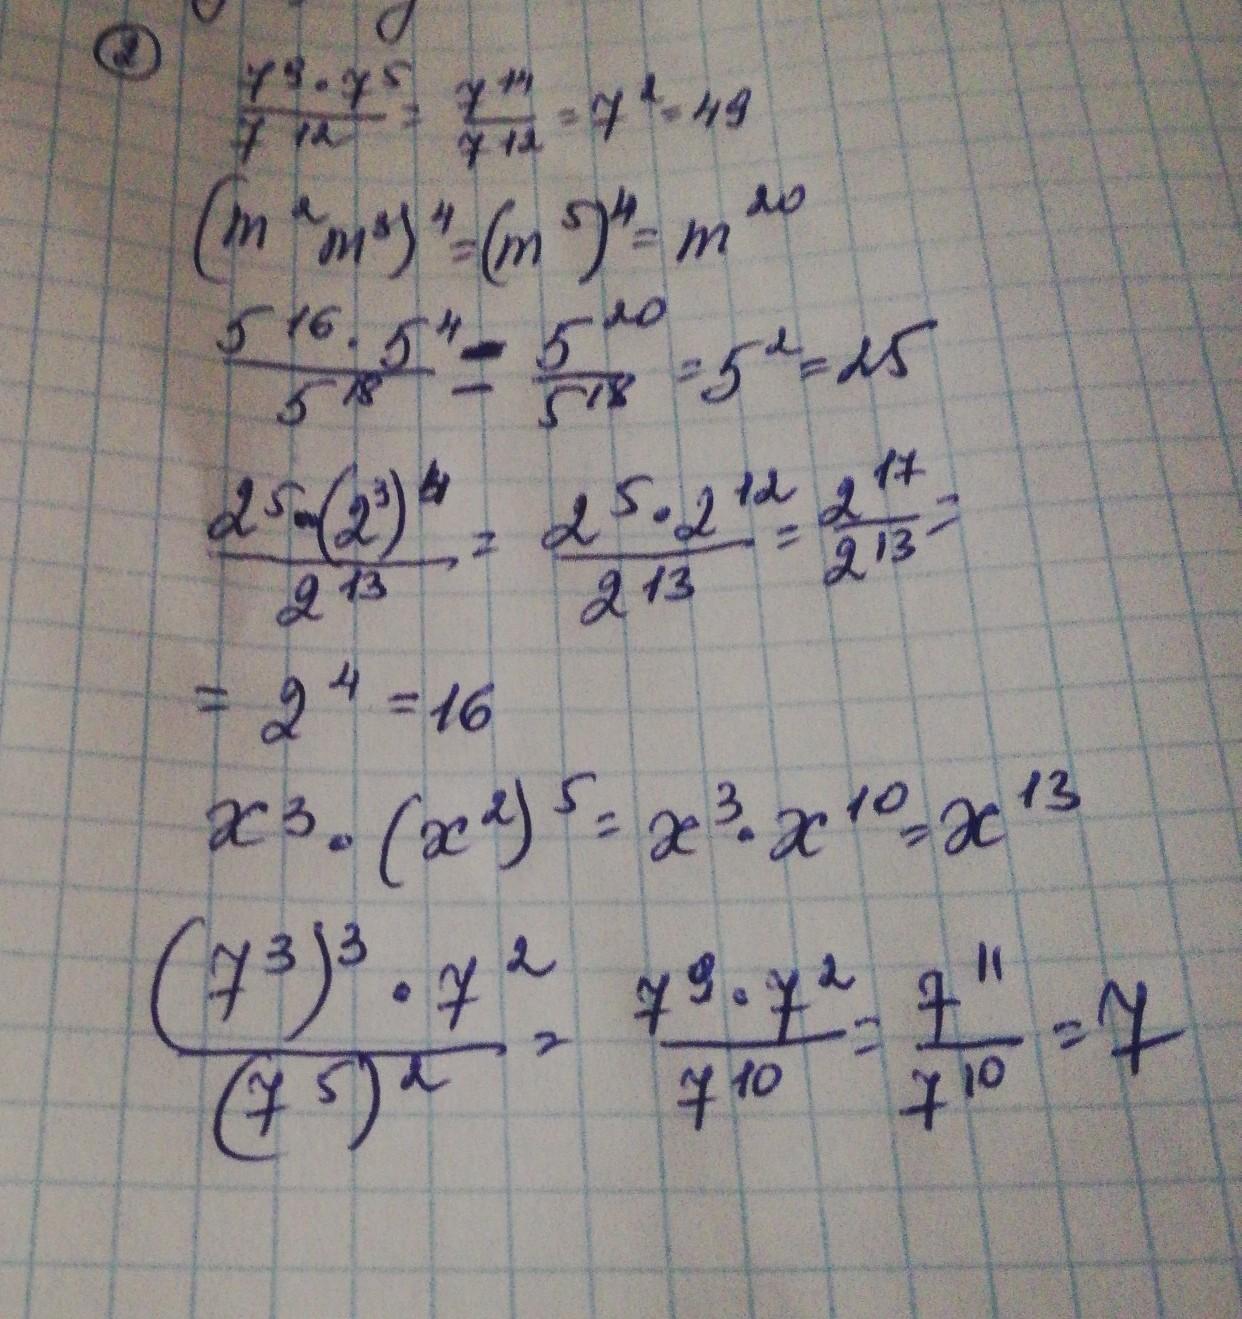 2
7⁹·7⁵/7¹² = 7¹⁴/7¹² = 7² = 49
(m²m³)⁴ = (m⁵)⁴ = m²⁰
5¹⁶·5⁴/5¹⁸ = 5²⁰/5¹⁸ = 5² = 25
2⁵·(2³)⁴/2¹³ = 2⁵·2¹²/2¹³ = 2¹⁷/2¹³ =
= 2⁴ = 16
x³·(x²)⁵ = x³·x¹⁰ = x¹³
(7³)³·7²/(7⁵)² = 7⁹·7²/7¹⁰ = 7¹¹/7¹⁰ = 7